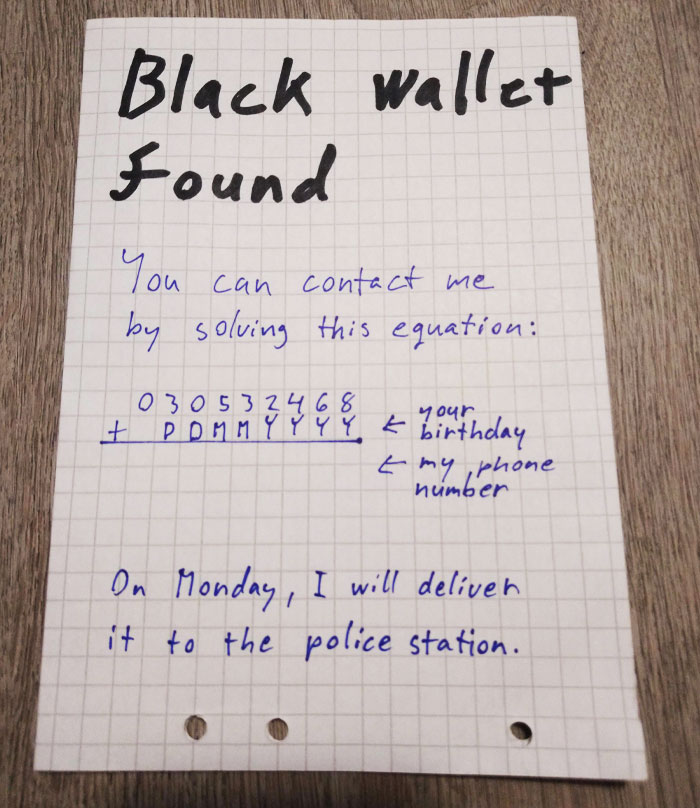 Black Wallet
Found
You can contact me
by solving this equation:
030532468
+ DDMMYYYY ← your birthday
← my phone number
On Monday, I will deliver
it to the police station.